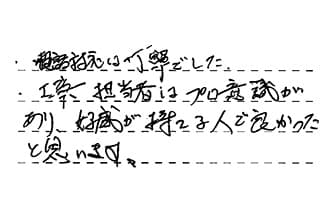 ・電話対応は丁寧でした。
・工事担当者はプロ意識が
あり、好感が持てる人で良かった
と思います。